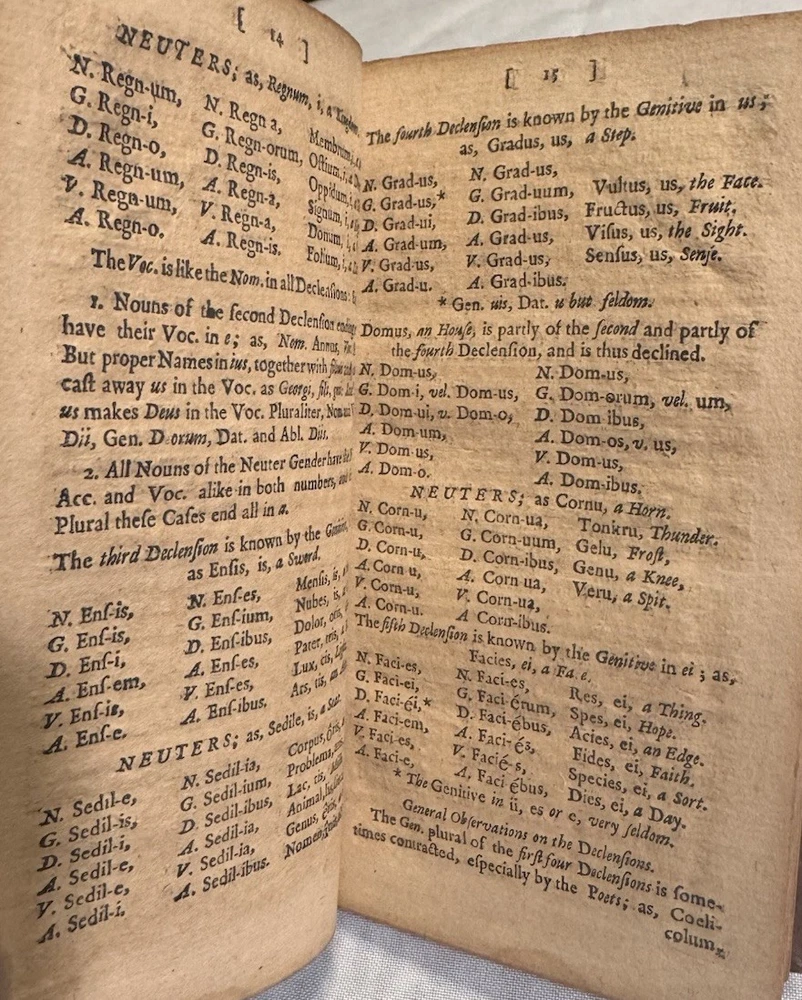 [ 14 ]
NEUTERS; as, Regnum, i, a
N. Regn-um,
G. Regn-i,
D. Regn-o,
A. Regn-um,
V. Regn-um,
A. Regn-o.
N. Regn a,
G. Regn-orum,
D. Regn-is,
A. Regn-a,
V. Regn-a,
A. Regn-is.
Membrum,
Ostium, i,
Oppidum,
Signum, i,
Donum, i,
Folium, i,
The Voc. is like the Nom. in all Declensions
1. Nouns of the second Declension
have their Voc. in e; as, Nom. Annus,
But proper Names in ius, together with
caſt away us in the Voc. as Georgi, fili,
us makes Deus in the Voc. Pluraliter,
Dii, Gen. Deorum, Dat. and Abl. Diis.
2. All Nouns of the Neuter Gender have
Acc. and Voc. alike in both numbers,
Plural theſe Caſes end all in a.
The third Declenſion is known by the
as Enſis, is, a Sword.
N. Enſ-is,
G. Enſ-is,
D. Enſ-i,
A. Enſ-em,
V. Enſ-is,
A. Enſ-e.
N. Enſ-es,
G. Enſ-ium,
D. Enſ-ibus,
A. Enſ-es,
V. Enſ-es,
A. Enſ-ibus.
Menſis, is,
Nubes, is,
Dolor,
Pater,
Lux, cis,
Ars, tis,
NEUTERS; as, Sedile, is, a
N. Sedil-e,
G. Sedil-is,
D. Sedil-i,
A. Sedil-e,
V. Sedil-e,
A. Sedil-i.
N. Sedil-ia,
G. Sedil-ium,
D. Sedil-ibus,
A. Sedil-ia,
V. Sedil-ia,
A. Sedil-ibus.
Corpus,
Problema,
Lac, tis,
Animal,
Genus,
Nomen,
[ 15 ]
The fourth Declenſion is known by the Genitive in us;
as, Gradus, us, a Step.
N. Grad-us,
G. Grad-us,*
D. Grad-ui,
A. Grad-um,
V. Grad-us,
A. Grad-u.
N. Grad-us,
G. Grad-uum,
D. Grad-ibus,
A. Grad-us,
V. Grad-us,
A. Grad-ibus.
Vultus, us, the Face.
Fructus, us, Fruit.
Viſus, us, the Sight.
Senſus, us, Senſe.
* Gen. uis, Dat. u but ſeldom.
Domus, an Houſe, is partly of the ſecond and partly of
the fourth Declenſion, and is thus declined.
N. Dom-us,
G. Dom-i, vel. Dom-us,
D. Dom-ui, v. Dom-o,
A. Dom-um,
V. Dom-us,
A. Dom-o.
N. Dom-us,
G. Dom-orum, vel. um,
D. Dom ibus,
A. Dom-os, v. us,
V. Dom-us,
A. Dom-ibus.
NEUTERS; as Cornu, a Horn.
N. Corn-u,
G. Corn-u,
D. Corn-u,
A. Corn u,
V. Corn-u,
A. Corn-u.
N. Corn-ua,
G. Corn-uum,
D. Corn-ibus,
A. Corn ua,
V. Corn-ua,
A Corn-ibus.
Tonitru, Thunder.
Gelu, Froſt,
Genu, a Knee,
Veru, a Spit.
The fifth Declenſion is known by the Genitive in ei; as,
Facies, ei, a Fa e.
N. Faci-es,
G. Faci-ei,
D. Faci-éi,*
A. Faci-em,
V. Faci-es,
A. Faci-e,
N. Faci-es,
G. Faci-érum,
D. Faci-ébus,
A. Faci-és,
V. Facié-s,
A. Faci ébus,
Res, ei, a Thing.
Spes, ei, Hope.
Acies, ei, an Edge.
Fides, ei, Faith.
Species, ei, a Sort.
Dies, ei, a Day.
* The Genitive in ii, es or e, very ſeldom.
General Obſervations on the Declenſions.
The Gen. plural of the firſt four Declenſions is ſome-
times contracted, eſpecially by the Poets; as, Coeli-
colum,